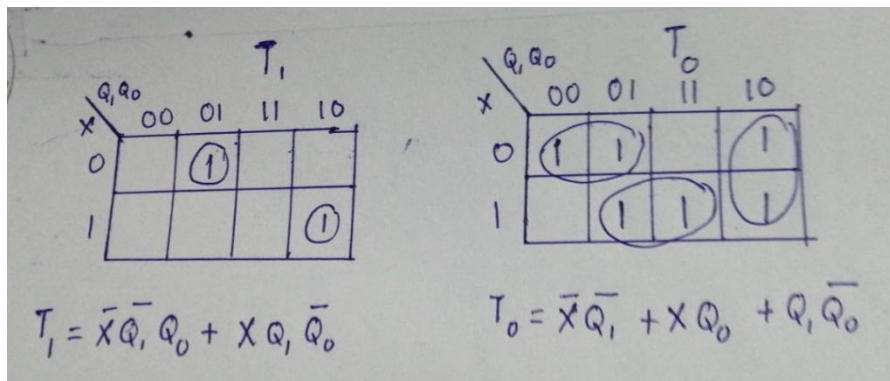 T₁
Q₁Q₀
X
00 01 11 10
0 1
1 1
T₁ = X̄ Q̄₁ Q₀ + X Q₁ Q̄₀
T₀
Q₁Q₀
X
00 01 11 10
0 1 1 1
1 1 1 1
T₀ = X̄ Q̄₁ + X Q₀ + Q₁ Q̄₀